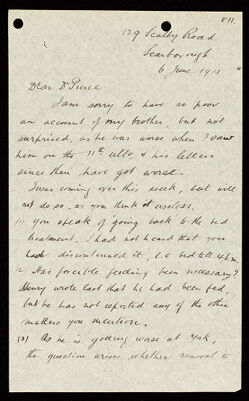 811.
129 Scalby Road
Scarborough
6 June 1915
Dear Dr Pierce
I am sorry to have so poor
an account of my brother, but not
surprised, as he was worse when I saw
him on the 11th ulto, & his letters
since then have got worse.
I was coming over this week, but will
not do so, as you think it useless.
(1) You speak of "going back to the bed
treatment." I had not heard that you
had discontinued it, i.e. bed till 4 p.m.
(2 Has forcible feeding been necessary?
wrote last that he had been fed,
but he has not reported any of the other
matters you mention.
(3) As he is getting worse at York,
the question arises whether removal to